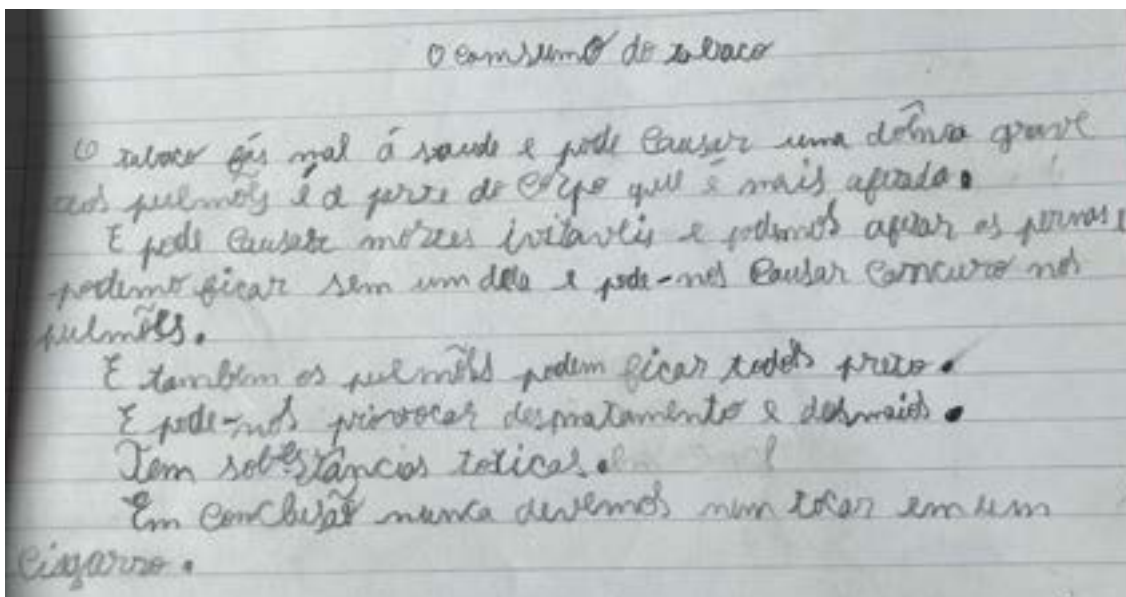 O comsumo do tabaco
O tabaco fás mal á saude e pode causar uma dôença grave
aos pulmões é a parte do corpo que é mais afetada.
E pode causar mortes ivitaveis e podemos afetar as pernas e
podemo ficar sem um dela e pode-nos causar cancuro nos
pulmões.
E também os pulmões podem ficar todos preto.
E pode-nos provocar desmatamento e desmaios.
Tem sobestâncias toticas.
Em conclusão nunca devemos nem tocar em um
cigarro.